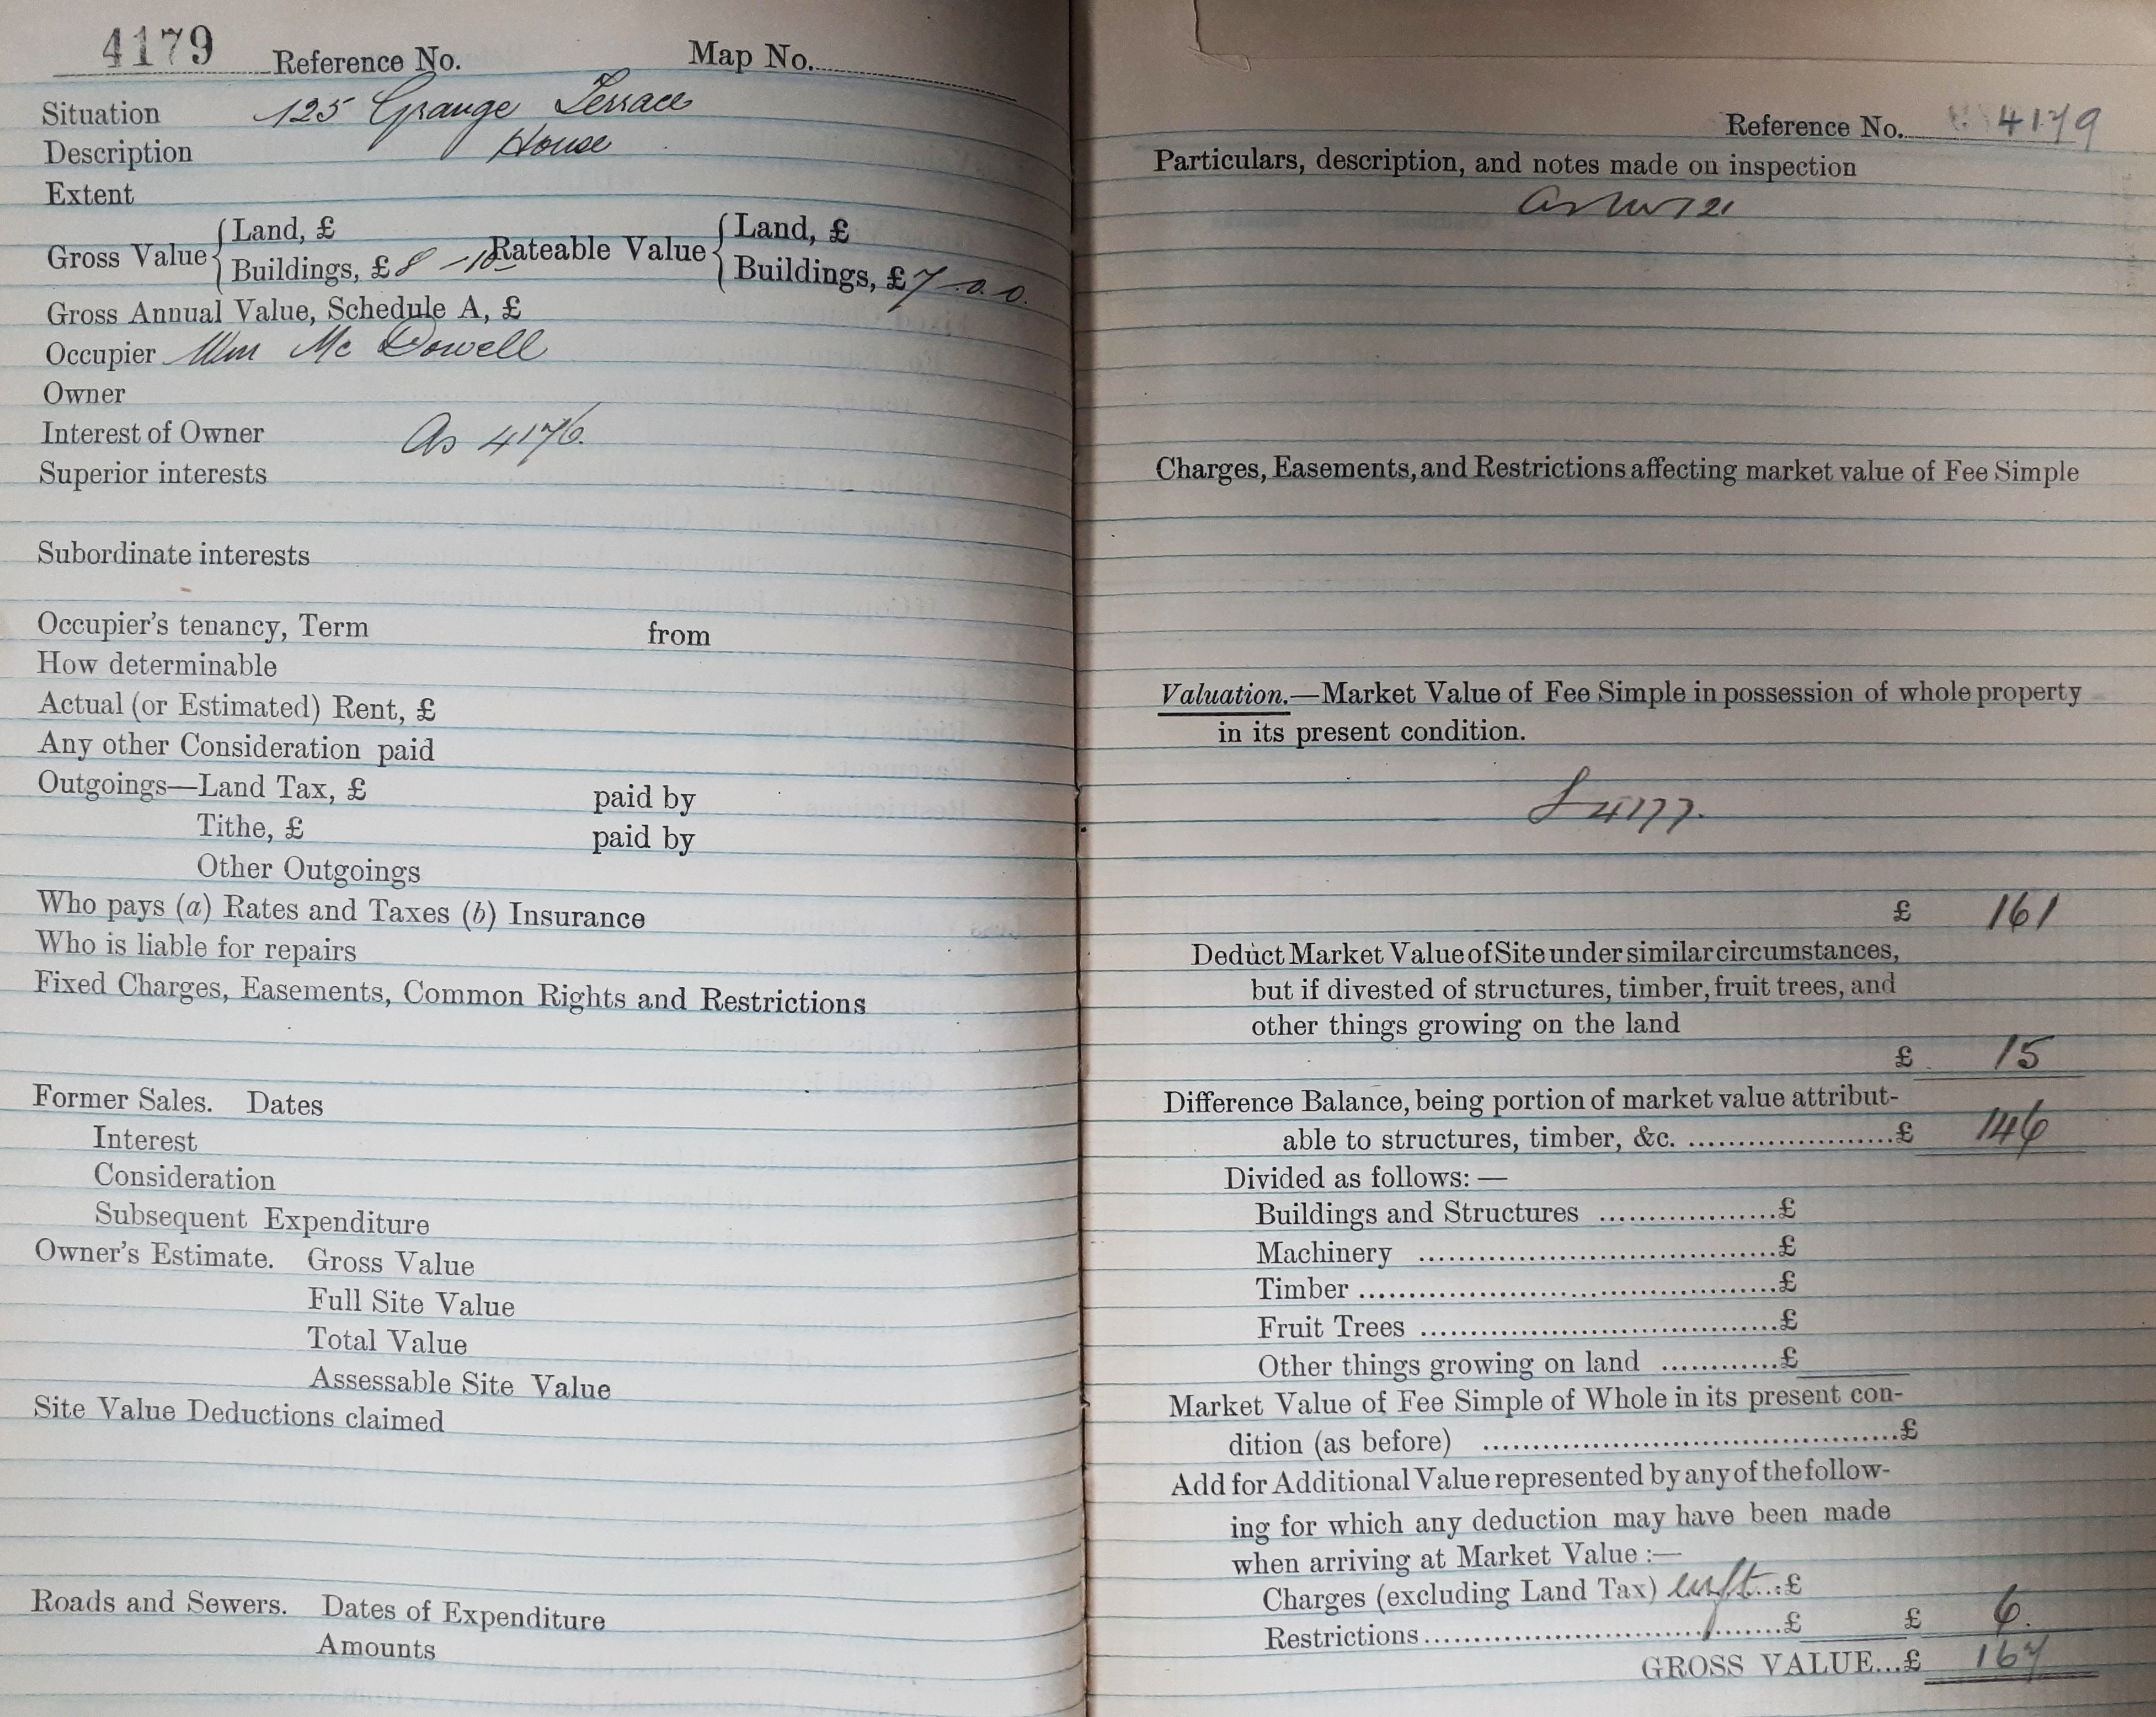 4179 Reference No. Map No.
Situation 125 Grange Terrace
Description House
Extent
Gross Value { Land, £ Rateable Value { Land, £
Buildings, £ 8 - 10 Buildings, £ 7 - 0. 0.
Gross Annual Value, Schedule A, £
Occupier Wm Mc Dowell
Owner
Interest of Owner As 4176.
Superior interests
Subordinate interests
Occupier's tenancy, Term from
How determinable
Actual (or Estimated) Rent, £
Any other Consideration paid
Outgoings—Land Tax, £ paid by
Tithe, £ paid by
Other Outgoings
Who pays (a) Rates and Taxes (b) Insurance
Who is liable for repairs
Fixed Charges, Easements, Common Rights and Restrictions
Former Sales. Dates
Interest
Consideration
Subsequent Expenditure
Owner's Estimate. Gross Value
Full Site Value
Total Value
Assessable Site Value
Site Value Deductions claimed
Roads and Sewers. Dates of Expenditure
Amounts
Reference No. 4179
Particulars, description, and notes made on inspection
as No 121
Charges, Easements, and Restrictions affecting market value of Fee Simple
Valuation.—Market Value of Fee Simple in possession of whole property
in its present condition.
4177.
£ 161
Deduct Market Value of Site under similar circumstances,
but if divested of structures, timber, fruit trees, and
other things growing on the land
£ 15
Difference Balance, being portion of market value attribut-
able to structures, timber, &c. £ 146
Divided as follows:—
Buildings and Structures £
Machinery £
Timber £
Fruit Trees £
Other things growing on land £
Market Value of Fee Simple of Whole in its present con-
dition (as before) £
Add for Additional Value represented by any of the follow-
ing for which any deduction may have been made
when arriving at Market Value :—
Charges (excluding Land Tax) £
Restrictions £ £ 6.
GROSS VALUE...£ 167